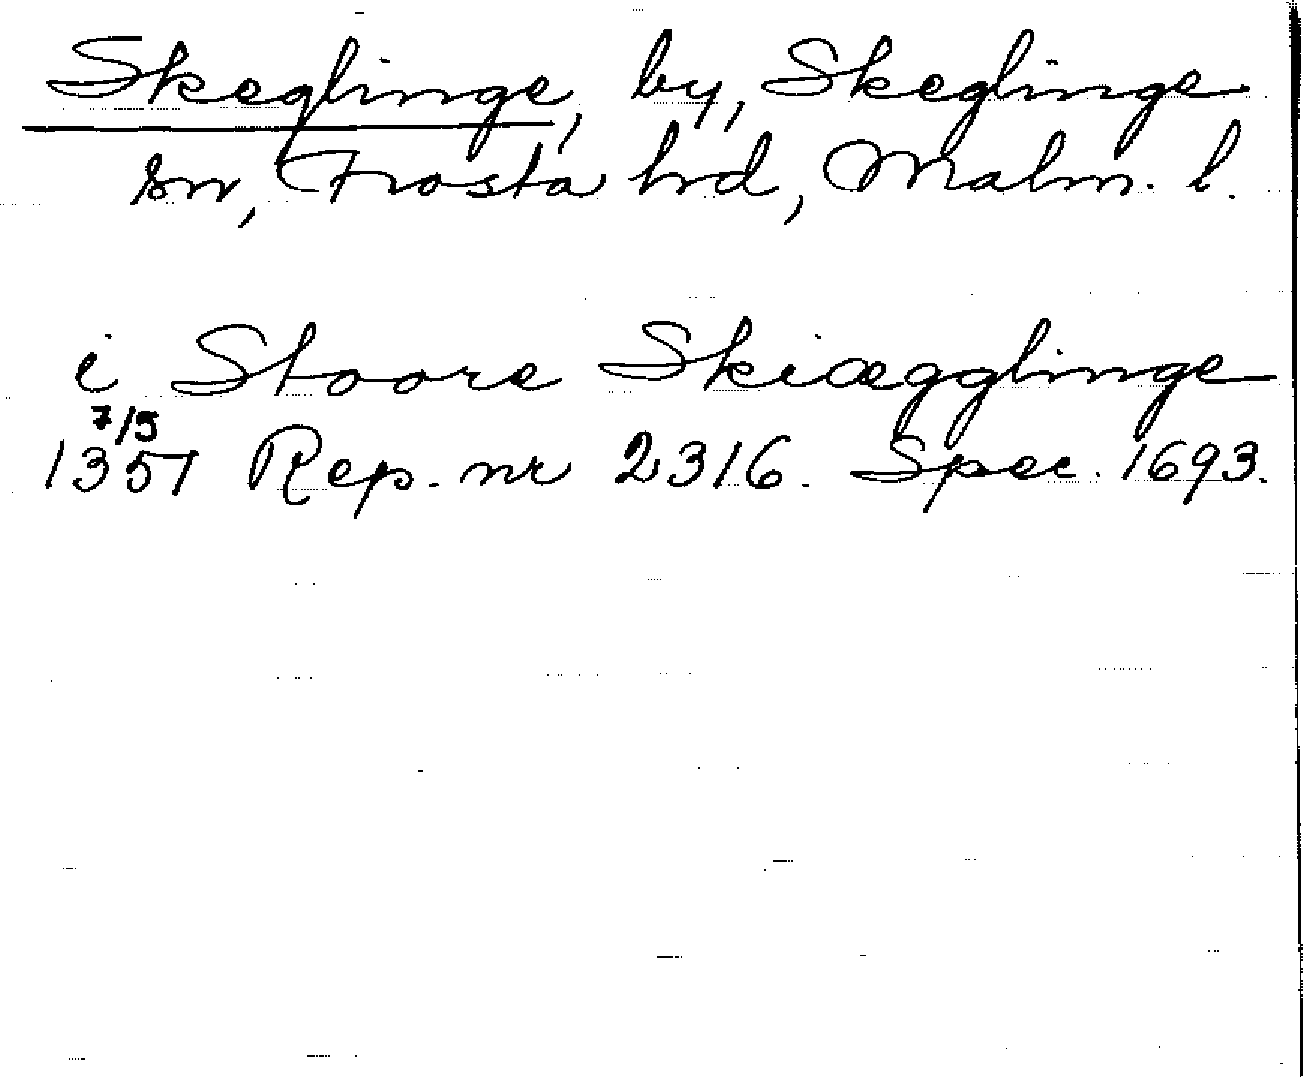 Skeglinge, by, Skeglinge
sn, Frosta hrd, Malm. l.
i Stoore Skiægglinge
7/5
1357 Rep. nr 2316. Spec. 1693.